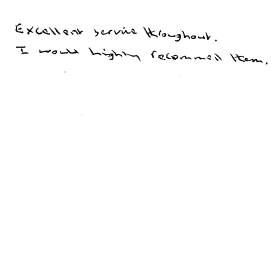 Excellent service throughout.
I would highly recommend them.